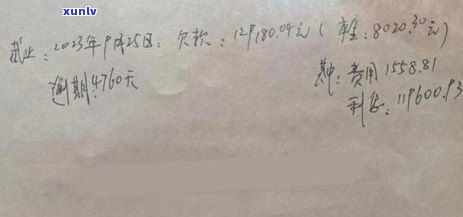 xunlv
截止：2023年9月25日，欠款：129180.04元（本金：8020.30元）
逾期：4760天
其中：费用1558.81
利息：119600.93